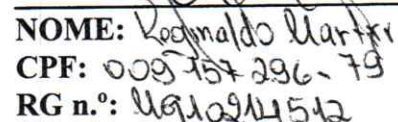 NOME: Reginaldo Martir
CPF: 009 157 296-79
RG n.º: MG10214512